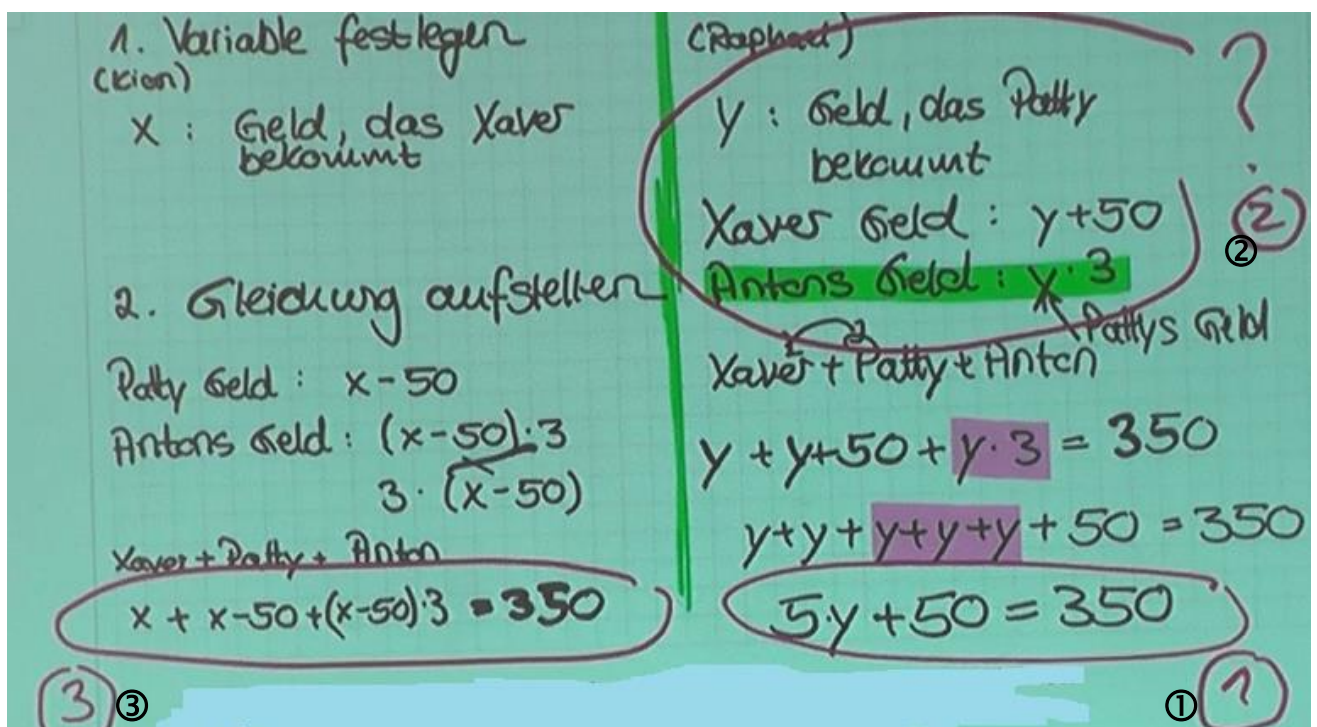 1. Variable festlegen
(Kian)
X : Geld, das Xaver
bekommt
2. Gleichung aufstellen
Patty Geld : x - 50
Antons Geld : (x-50)·3
3 · (x-50)
Xaver + Patty + Anton
x + x-50 +(x-50)·3 = 350
3 ③
(Raphael)
?
y : Geld, das Patty
bekommt
Xaver Geld : y+50
2
②
Antons Geld : x · 3
Pattys Geld
1 2
Xaver + Patty + Anton
y + y+50 + y·3 = 350
y+y+y+y+y + 50 = 350
5·y +50 = 350
① 1